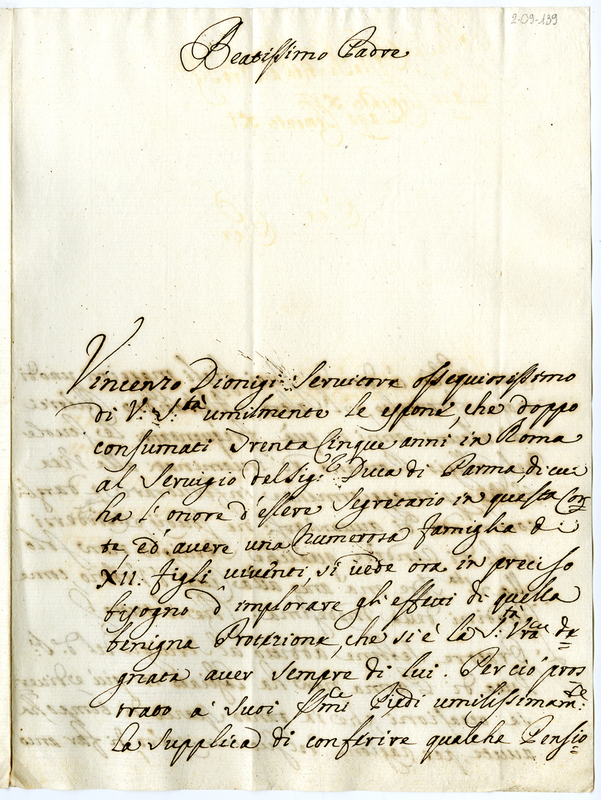 2-09-139
Beatissimo Padre
Vincenzo Dionigi Servitore ossequiosissimo
di V: S:tà umilmente le espone, che doppo
consumati Trenta Cinque anni in Roma
al Servigio del Sig:r Duca di Parma, di cui
ha l'onore d'essere Segretario in questa Cor=
te, ed avere una numerosa famiglia di
XII. figli viventi, si vede ora in preciso
bisogno d'implorare gli effetti di quella
benigna Protezione, che si è la S:tà Vra de=
gnata aver sempre di lui. Perciò pros
trato a' suoi ssmi Piedi umilissimamte
la supplica di conferire qualche Pensio=